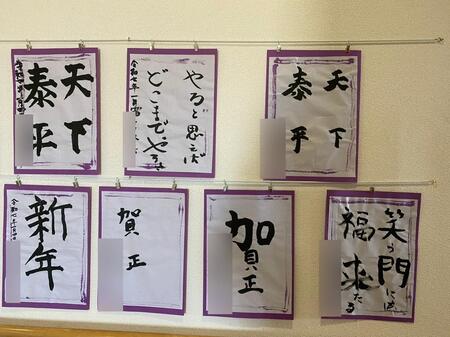 天下
泰平
やると思えば
どこまでやるさ
令和七年一月
天下
泰平
新年
令和七年
賀正
賀正
笑う門には
福来たる